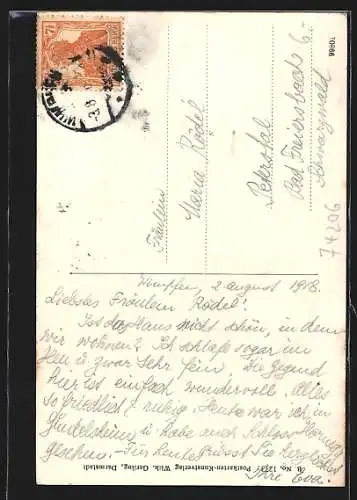 Fräulein
Maria Rödel
Peterstal
Bad Freiersbach 6.
Schwarzwald
TORG6
74206
Wimpfen, 2 august 1918.
Liebstes Fräulein Rödel!
Ist das Haus nicht schön, in dem
wir wohnen? Ich schlafe sogar im
Heu u. zwar sehr fein. Die Gegend
hier ist einfach wundervoll. Alles
so friedlich & ruhig. Heute war ich in
Gundelsheim u. habe auch Schloss Hornegg
gesehen. Für heute grüsst Sie herzlichst
Ihre Eva.
Postkarten-Kunstverlag Wilh. Gerling, Darmstadt